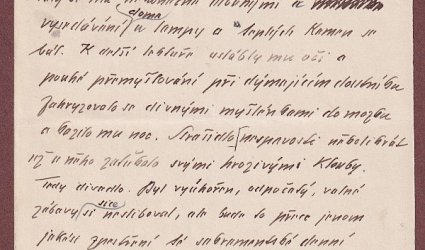 doma
vysedávání u lampy a teplých kamen se
bál. K delší lektuře uslábly mu oči a
pouhé přemyšlování při dýmajícím doutníku
zahryzovalo se divnými myšlénkami do mozku
a bralo mu noc. Strašidlo nespavosti několikrát
už u něho zaťukalo svými hrozivými klouby.
Tedy divadlo. Byl vyspalý, odpočatý, valné
zábavy si sice nesliboval, ale bude to přece jenom
jakési zpestření té denní